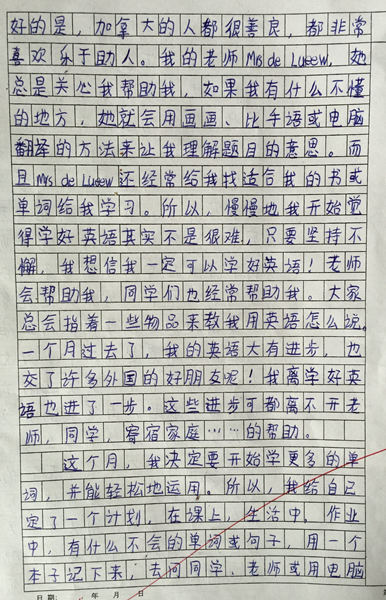 好的是，加拿大的人都很善良，都非常
喜欢乐于助人。我的老师Mrs de Lueew，她
总是关心我帮助我，如果我有什么不懂
的地方，她就会用画画、比手语或电脑
翻译的方法来让我理解题目的意思。而
且Mrs de Lueew还经常给我找适合我的书或
单词给我学习。所以，慢慢地我开始觉
得学好英语其实不是很难，只要坚持不
懈，我想信我一定可以学好英语！老师
会帮助我，同学们也经常帮助我。大家
总会指着一些物品来教我用英语怎么说。
一个月过去了，我的英语大有进步，也
交了许多外国的好朋友呢！我离学好英
语也进了一步。这些进步可都离不开老
师，同学，寄宿家庭……的帮助。
这个月，我决定要开始学更多的单
词，并能轻松地运用。所以，我给自己
定了一个计划，在课上，生活中。作业
中，有什么不会的单词或句子，用一个
本子记下来，去问同学、老师或用电脑
日期： 年 月 日